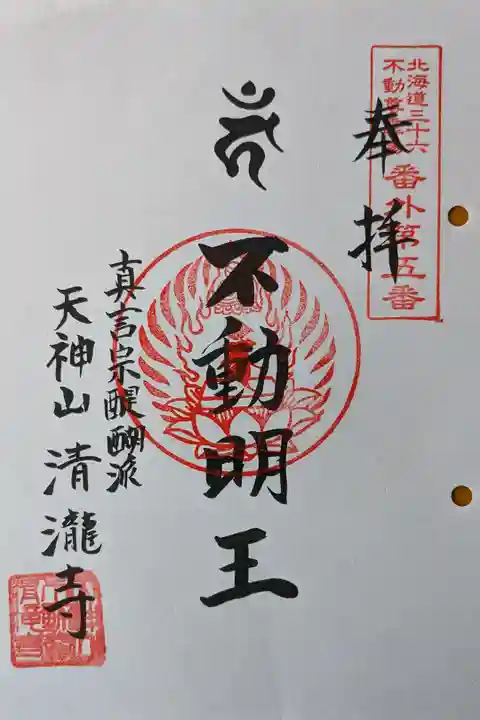 北海道三十六
不動尊霊場
番外第五番
奉拝
不動明王
真言宗醍醐派
天神山 清瀧寺